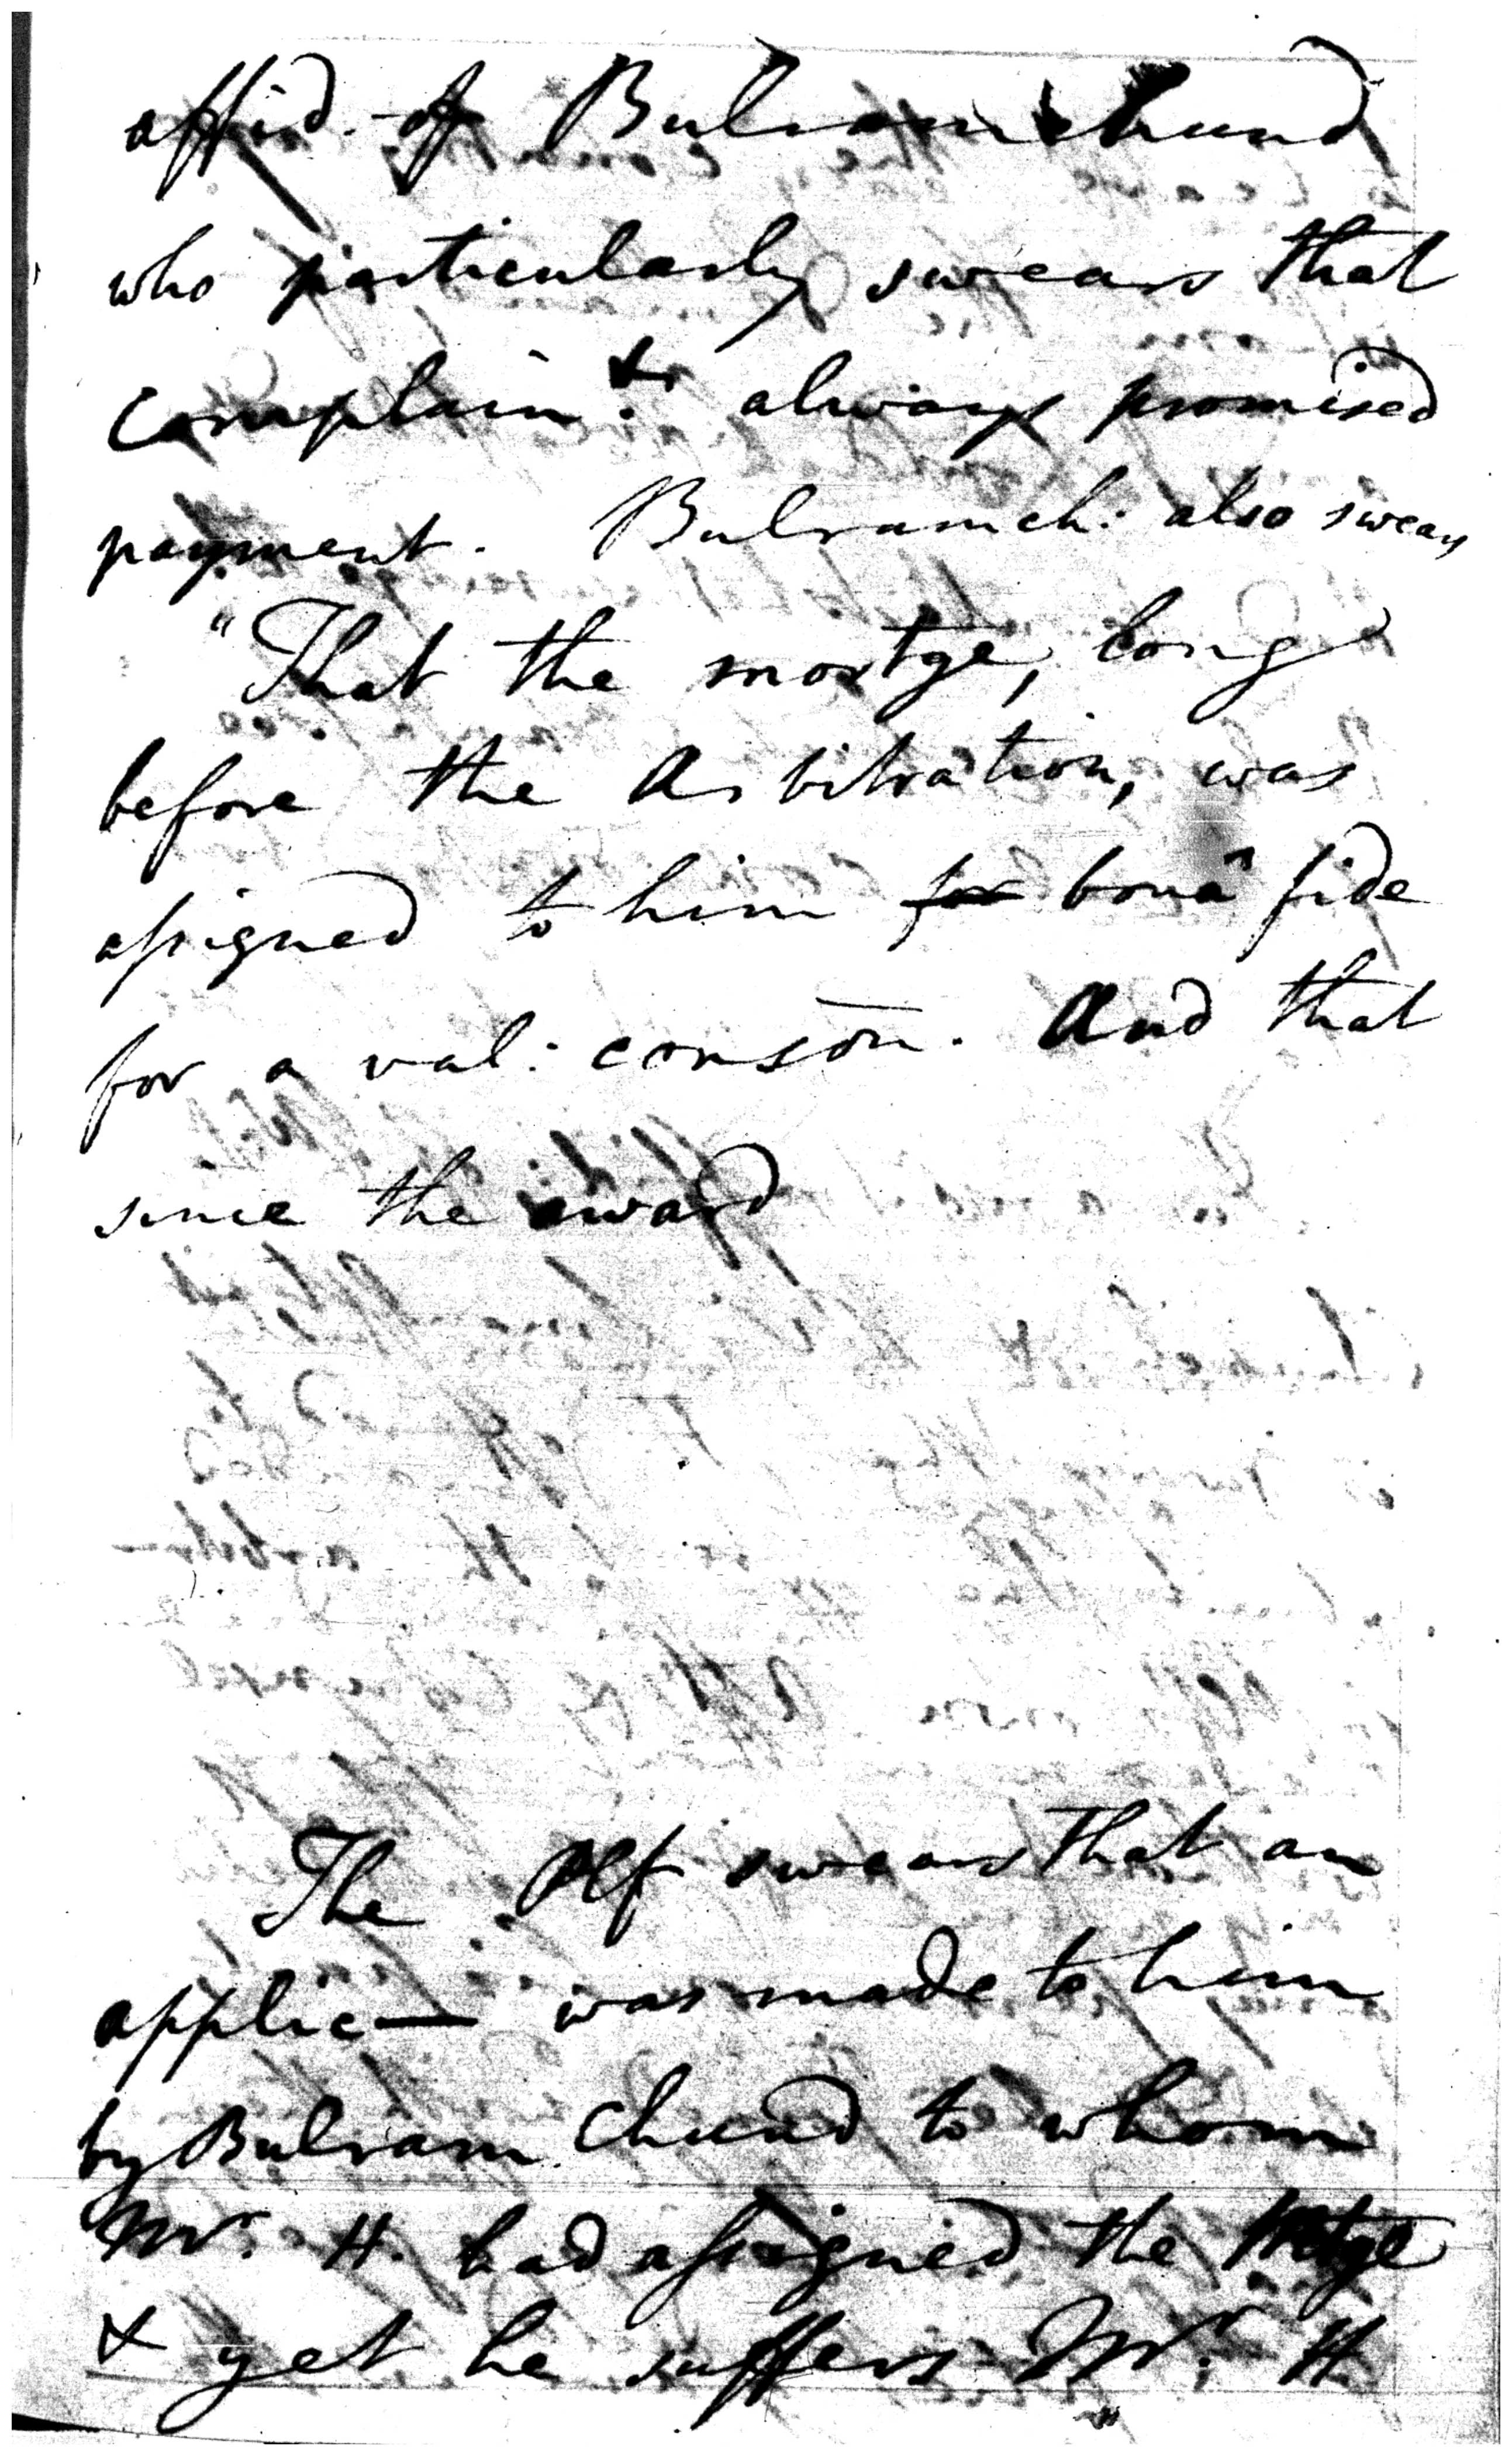 affid. of Bulramchund
who particularly swears that
complain.t always promised
payment. Bulramch: also swears
"That the mortge, long
before the Arbitration, was
assigned to him for bonâ fide
for a val: conson. And that
since the award
The Plf swears that an
applic— was made to him
by Bulram Chund to whom
Mr. H. had assigned the Mtge
& yet he suffers Mr. H